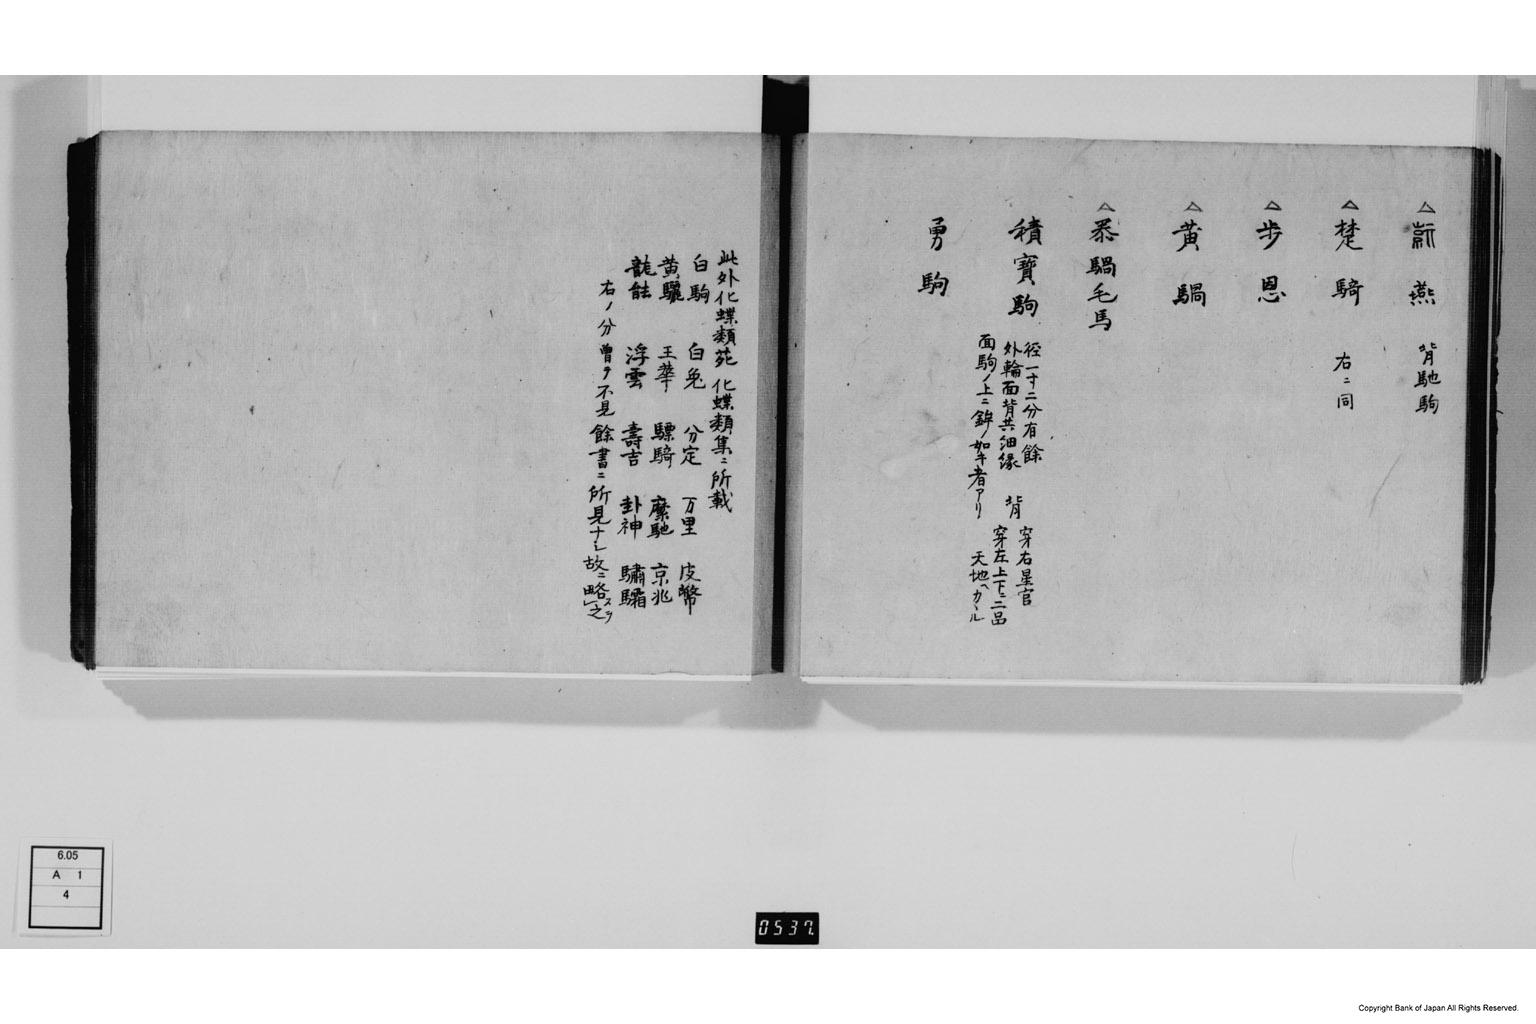 △新燕 背馳駒
△楚騎 右ニ同
△歩恩
△黄騧
△騧毛馬
積寳駒
径一寸二分有餘
外輪面背共細縁
面駒ノ上ニ鉾ノ如キ者アリ
背
穿右星官
穿左上下ニ二品
天地ヘカヽル
勇駒
此外化蝶類苑化蝶類集ニ所載
白駒 白兎 分定 万里 皮幣
黄驪 王華 驃騎 縻馳 京兆
龍能 浮雲 壽吉 卦神 驌驦
右ノ分曽テ不見餘書ニ所見ナシ故ニ略之
6.05
A 1
4
0537
Copyright Bank of Japan All Rights Reserved.